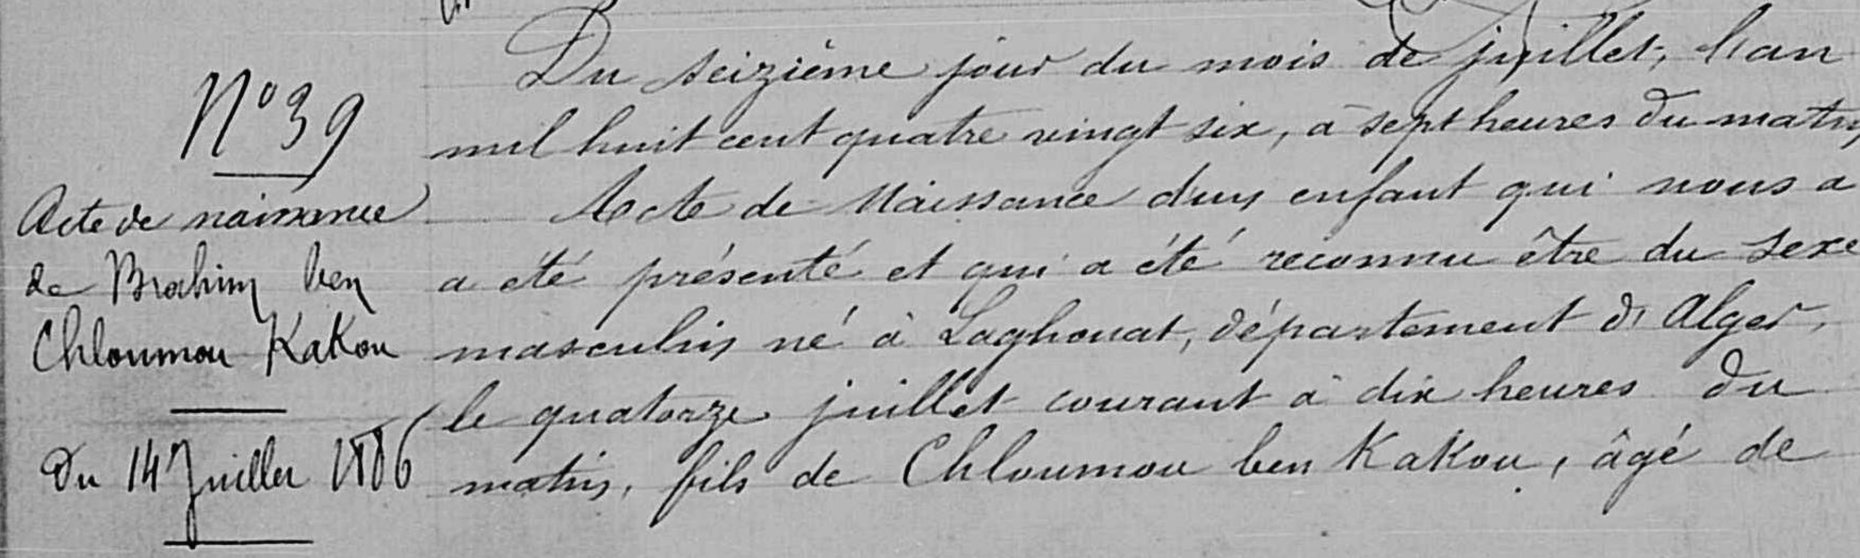 N° 39
Acte de naissance
de Brahim ben
Chloumou Kakou
Du 14 Juillet 1886
Du seizième jour du mois de juillet, l'an
mil huit cent quatre vingt six, à sept heures du matin
Acte de Naissance d'un enfant qui nous a
a été présenté et qui a été reconnu être du sexe
masculin né à Laghouat, département d'Alger,
le quatorze juillet courant à dix heures du
matin, fils de Chloumou ben Kakou, âgé de